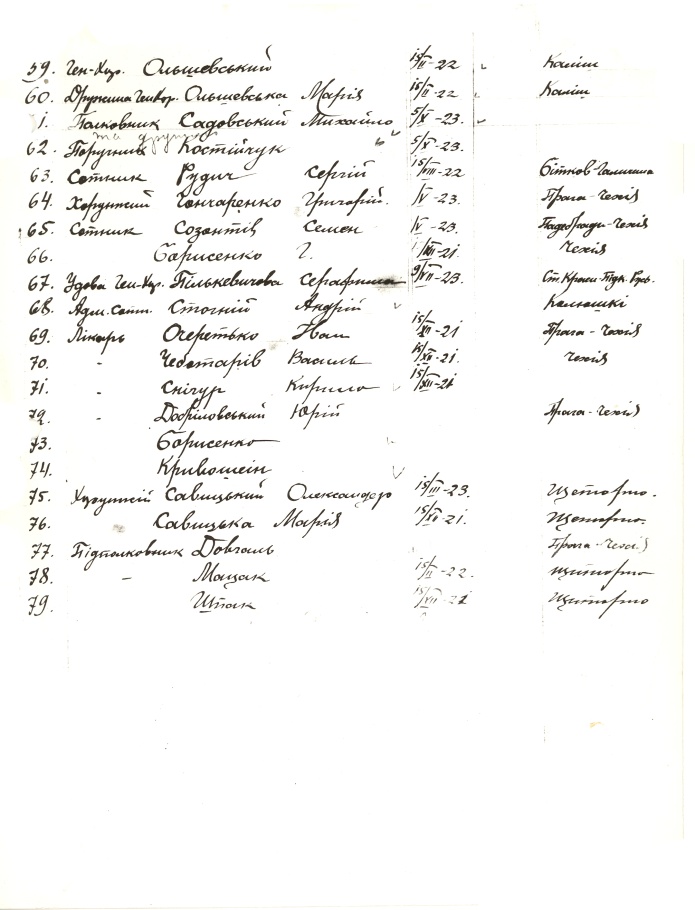 59. Ген-Хор. Ольшевський 15/II-22 Каліш
60. Дружина Ген Хор. Ольшевська Марія 15/II-22 Каліш
1. Полковник Садовський Михайло 5/X-23.
та дружина
62. Поручник Костійчук 5/X-23.
63. Сотник Рудич Сергій 15/VIII-22 Бітков-Галичина
64. Хорунжий Гончаренко Григорій. /V-23. Прага-Чехія
65. Сотник Созантів Семен /V-23. Чехія
66. Борисенко Г. /XII-21. Чехія
67. Удова Ген-Хор. Пількевичова Серафима 9/VII-23.
68. Адм. сотн. Стогній Андрій
69. Лікарь Очеретько Іван 15/XI-21 Прага-Чехія
70. - Чеботарів Василь 15/XII-21. Чехія
71. - Снігур Кирило 15/XII-21
72. - Добриловський Юрій Прага-Чехія
73. Борисенко
74. Кривошеїн
75. Хорунжій Савицький Олександер 15/III-23. Щепіорно.
76. Савицька Марія 15/XI-21. Щепіорно.
77. Підполковник Довгаль Прага-Чехія
78. - Мацак 15/II-22. Щепіорно
79. Шпак 15/VII-21 Щепіорно